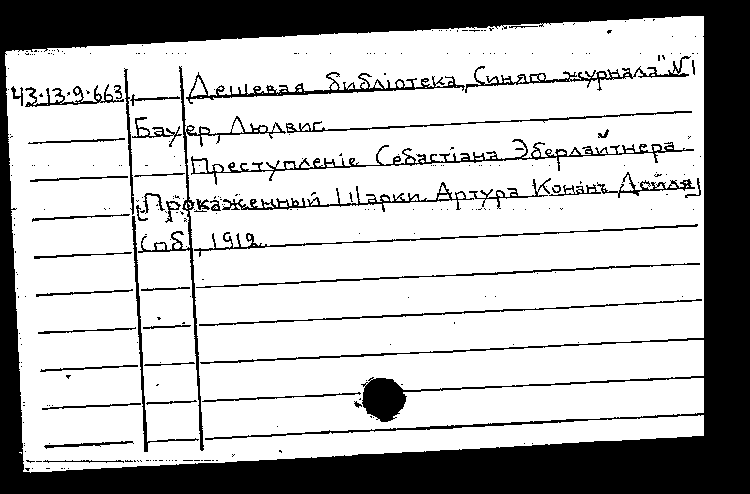 43·13·9·663 Дешевая библіотека „Синяго журнала" №1
Бауер, Людвиг
Преступленіе Себастіана Эберлайтнера
[Прокаженный Шарки. Артура Конанъ Дойля]
Спб., 1912